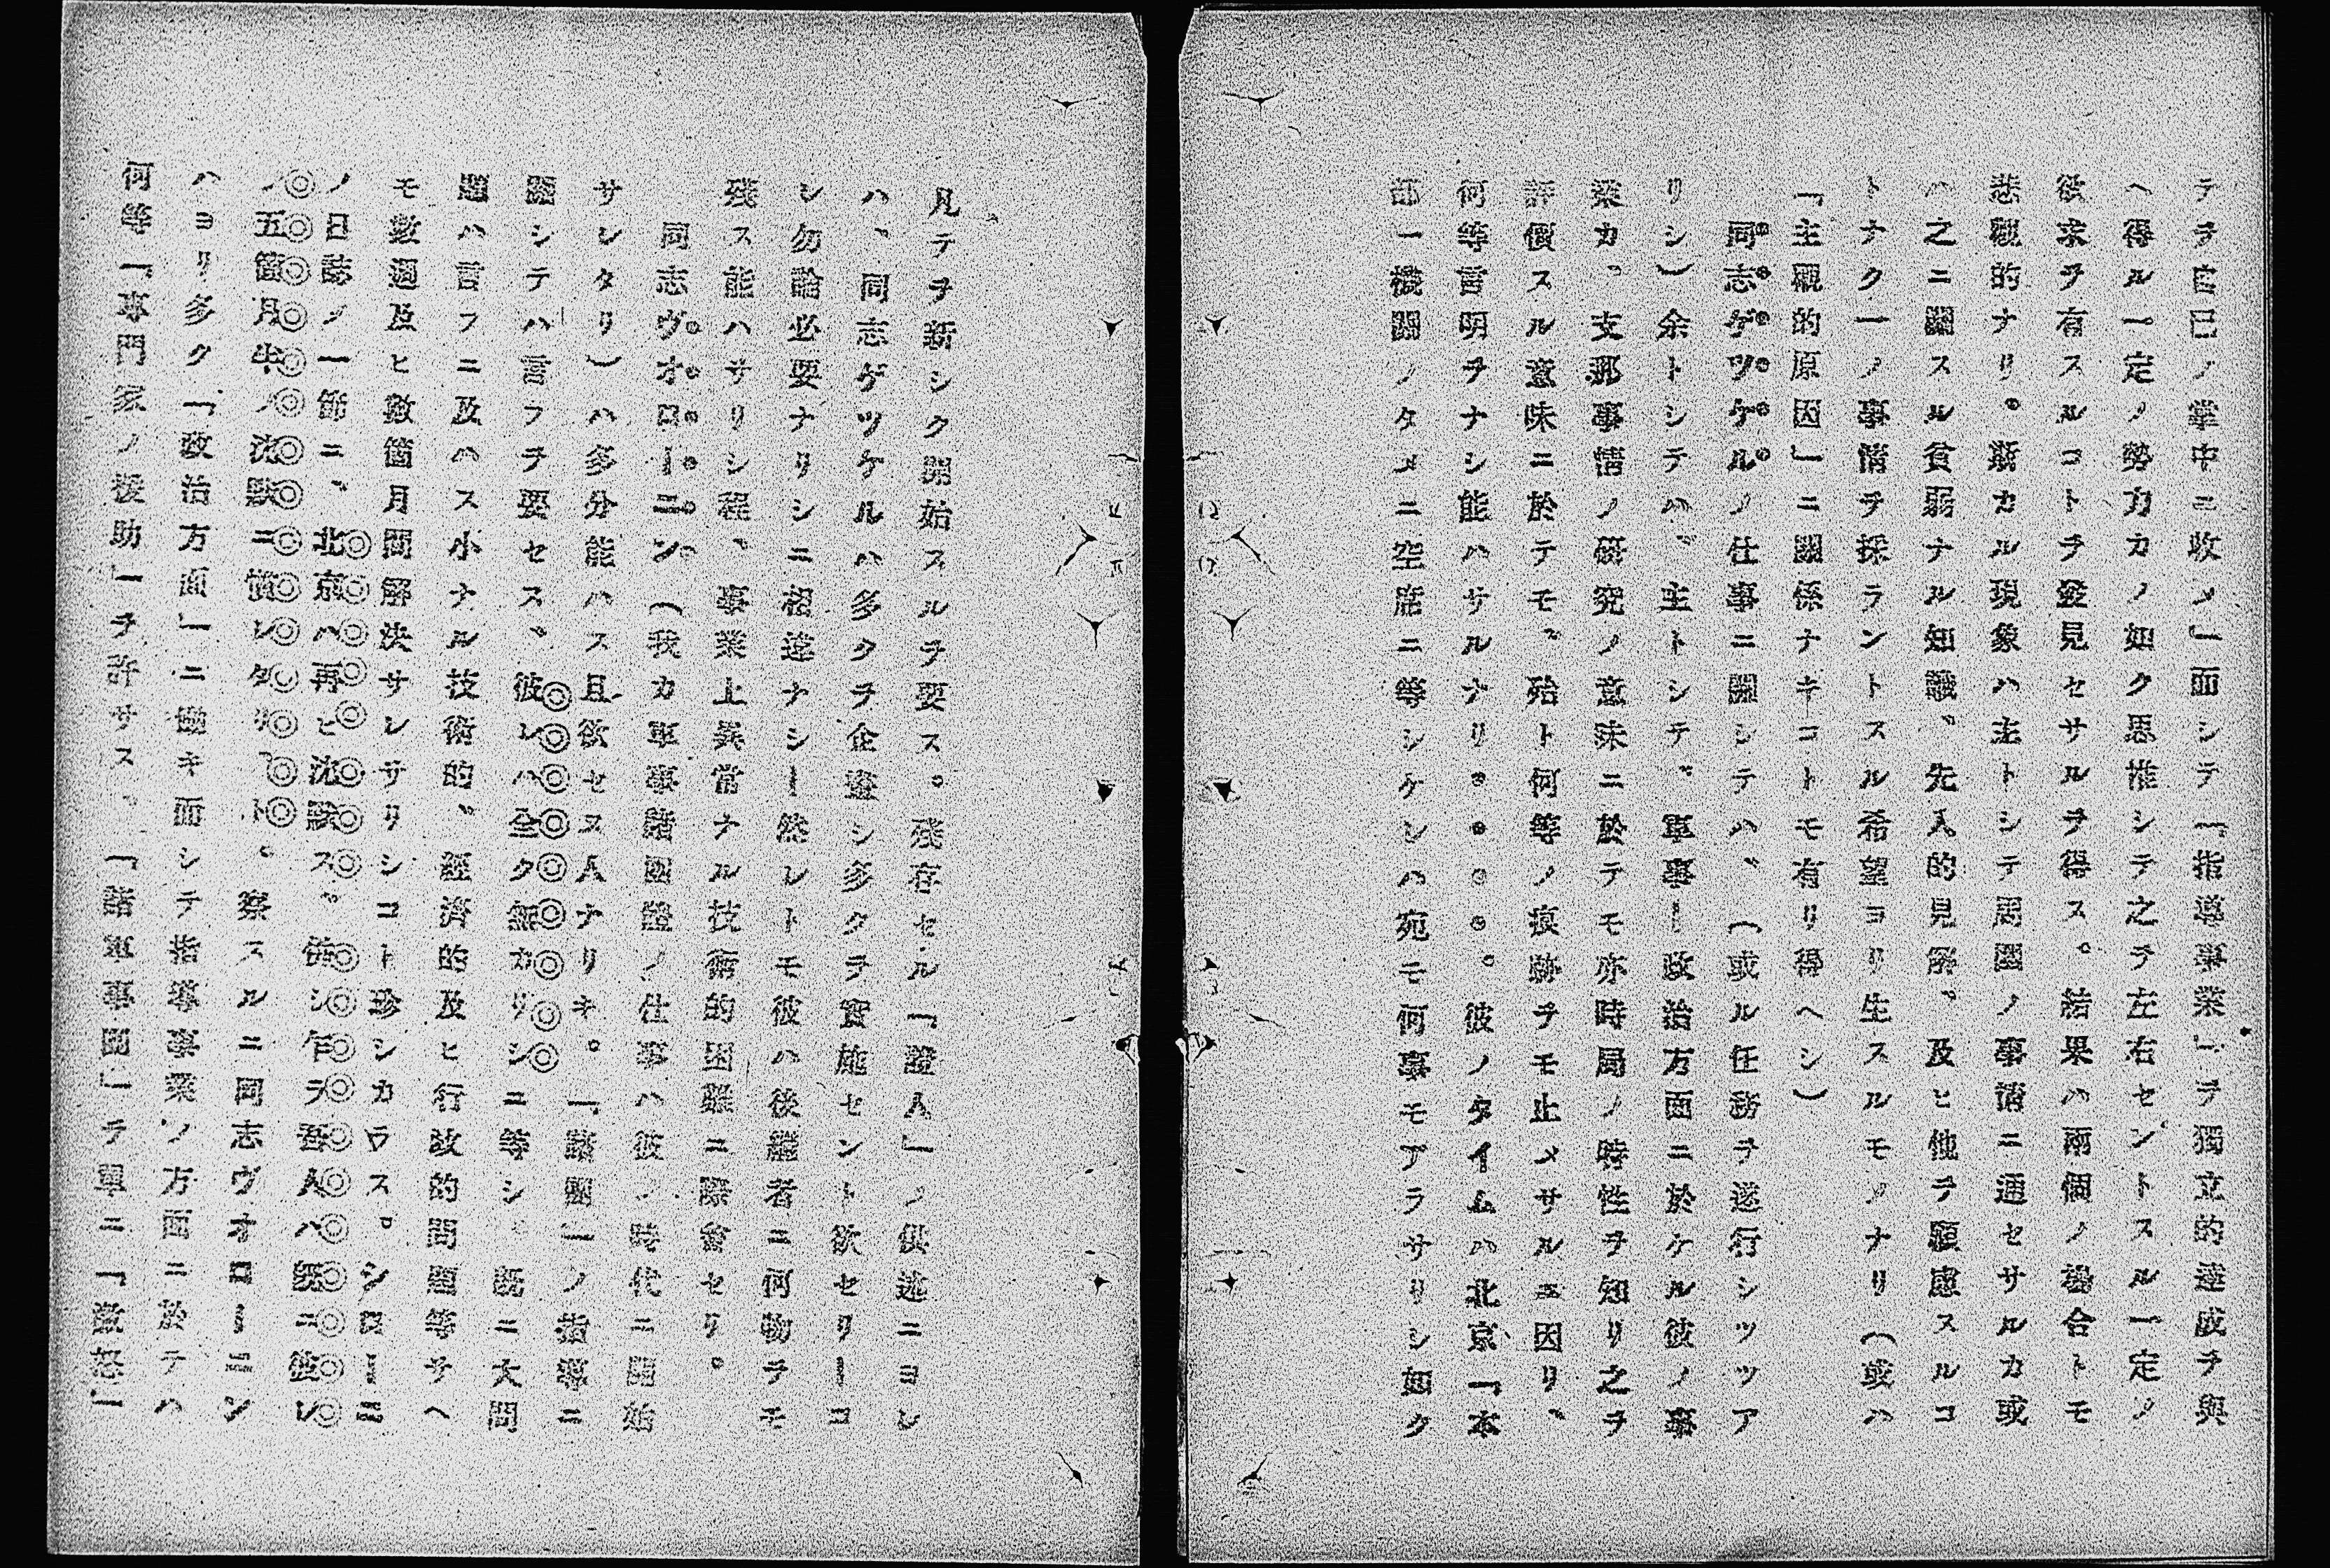 テヲ自己ノ掌中ニ收メ」而シテ「指導事業」ヲ獨立的達成ヲ與
ヘ得ル一定ノ勢力カノ如ク思惟シテ之ヲ左右セントスル一定ノ
欲求ヲ有スルコトヲ發見セサルヲ得ス。結果ハ兩個ノ場合トモ
悲觀的ナリ。斯カル現象ハ主トシテ周圍ノ事情ニ通セサルカ或
ハ之ニ關スル貧弱ナル知識、先入的見解、及ヒ他ヲ顧慮スルコ
トナク一ノ事情ヲ採ラントスル希望ヨリ生スルモノナリ(或ハ
「主觀的原因」ニ關係ナキコトモ有リ得ヘシ)
同志ゲツケルノ仕事ニ關シテハ、(或ル任務ヲ遂行シツツア
リシ)余トシテハ、主トシテ、軍事ー政治方面ニ於ケル彼ノ事
業カ、支那事情ノ研究ノ意味ニ於テモ亦時局ノ時性ヲ知リ之ヲ
評價スル意味ニ於テモ、殆ト何等ノ痕跡ヲモ止メサルニ因リ、
何等言明ヲナシ能ハサルナリ。。。。。彼ノタイムハ北京「本
部ー機關ノタメニ空席ニ等シケレハ宛モ何事モアラサリシ如ク
凡テヲ新シク開始スルヲ要ス。殘存セル「證人」ノ供述ニヨレ
ハ、同志ゲツケルハ多クヲ企畫シ多クヲ實施セント欲セリーコ
シ勿論必要ナリシニ相違ナシー然レトモ彼ハ後繼者ニ何物ヲモ
殘ス能ハサリシ程、事業上異常ナル技術的困難ニ際會セリ。
同志ヴオローニン(我カ軍事諸團體ノ仕事ハ彼ノ時代ニ開始
サレタリ)ハ多分能ハス且欲セヌ人ナリキ。「諸團」ノ指導ニ
關シテハ言フヲ要セス、彼レハ全ク無カリシニ等シ。既ニ大問
題ハ言フニ及ハス小ナル技術的、經濟的及ヒ行政的問題等サヘ
モ數週及ヒ數箇月間解決サレサリシコト珍シカラス。シローニ
ノ日誌ノ一節ニ、北京ハ再ヒ沈默ス、倂シ乍ラ吾人ハ既ニ彼レ
ノ五箇月半ノ沈默ニ慣レタリ、ト。察スルニ同志ヴオローニン
ハヨリ多ク「政治方面」ニ傾キ而シテ指導事業ノ方面ニ於テハ
何等「專門家ノ援助」ヲ許サス。「諸軍事團」ヲ單ニ「激怒」